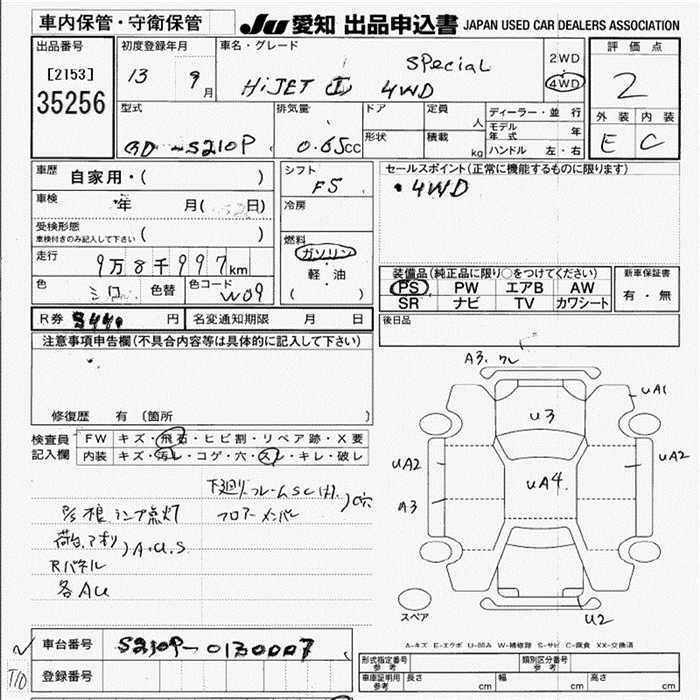 車内保管・守衛保管
JU 愛知 出品申込書 JAPAN USED CAR DEALERS ASSOCIATION
出品番号
[2153]
35256
初度登録年月
13 9月
車名・グレード
HiJET 4WD SPecial
2WD
4WD
評価点
2
外装 内装
E C
型式
GD-S210P
排気量
0.65CC
ドア
形状
定員 人
積載 kg
ディーラー・並行
モデル年式 年
ハンドル 左・右
車歴 自家用・( )
車検 年 月( 日)
受検形態
車検付きのみ記入して下さい ( )
走行 9万8千997km
色 シロ 色替 色コード W09
シフト
F5
冷房
燃料
ガソリン
軽・油
( )
セールスポイント(正常に機能するものに限ります)
・4WD
装備品(純正品に限り○をつけてください)
PS PW エアB AW
SR ナビ TV カワシート
新車保証書
有・無
後日品
R券 円 名変通知期限 月 日
注意事項申告欄(不具合内容等は具体的に記入して下さい)
修復歴 有(箇所 )
検査員記入欄
FW キズ・飛石・ヒビ割・リペア跡・X要
内装 キズ・汚レ・コゲ・穴・スレ・キレ・破レ
下廻りフレームSC
フロアーメンバー
穴
ランプ点灯
荷台アオリ
A.U.S
Rパネル
各AU
A3.
U3
UA1
UA2
UA2
UA4.
A3
U2
スペア
A-キズ E-エクボ U-凹み W-補修跡 S-サビ C-腐食 XX-交換済
車台番号 S210P-0130007
登録番号
形式指定番号 参考
類別区分番号 参考
車庫証明用 参考 長さ cm 幅 cm 高さ cm